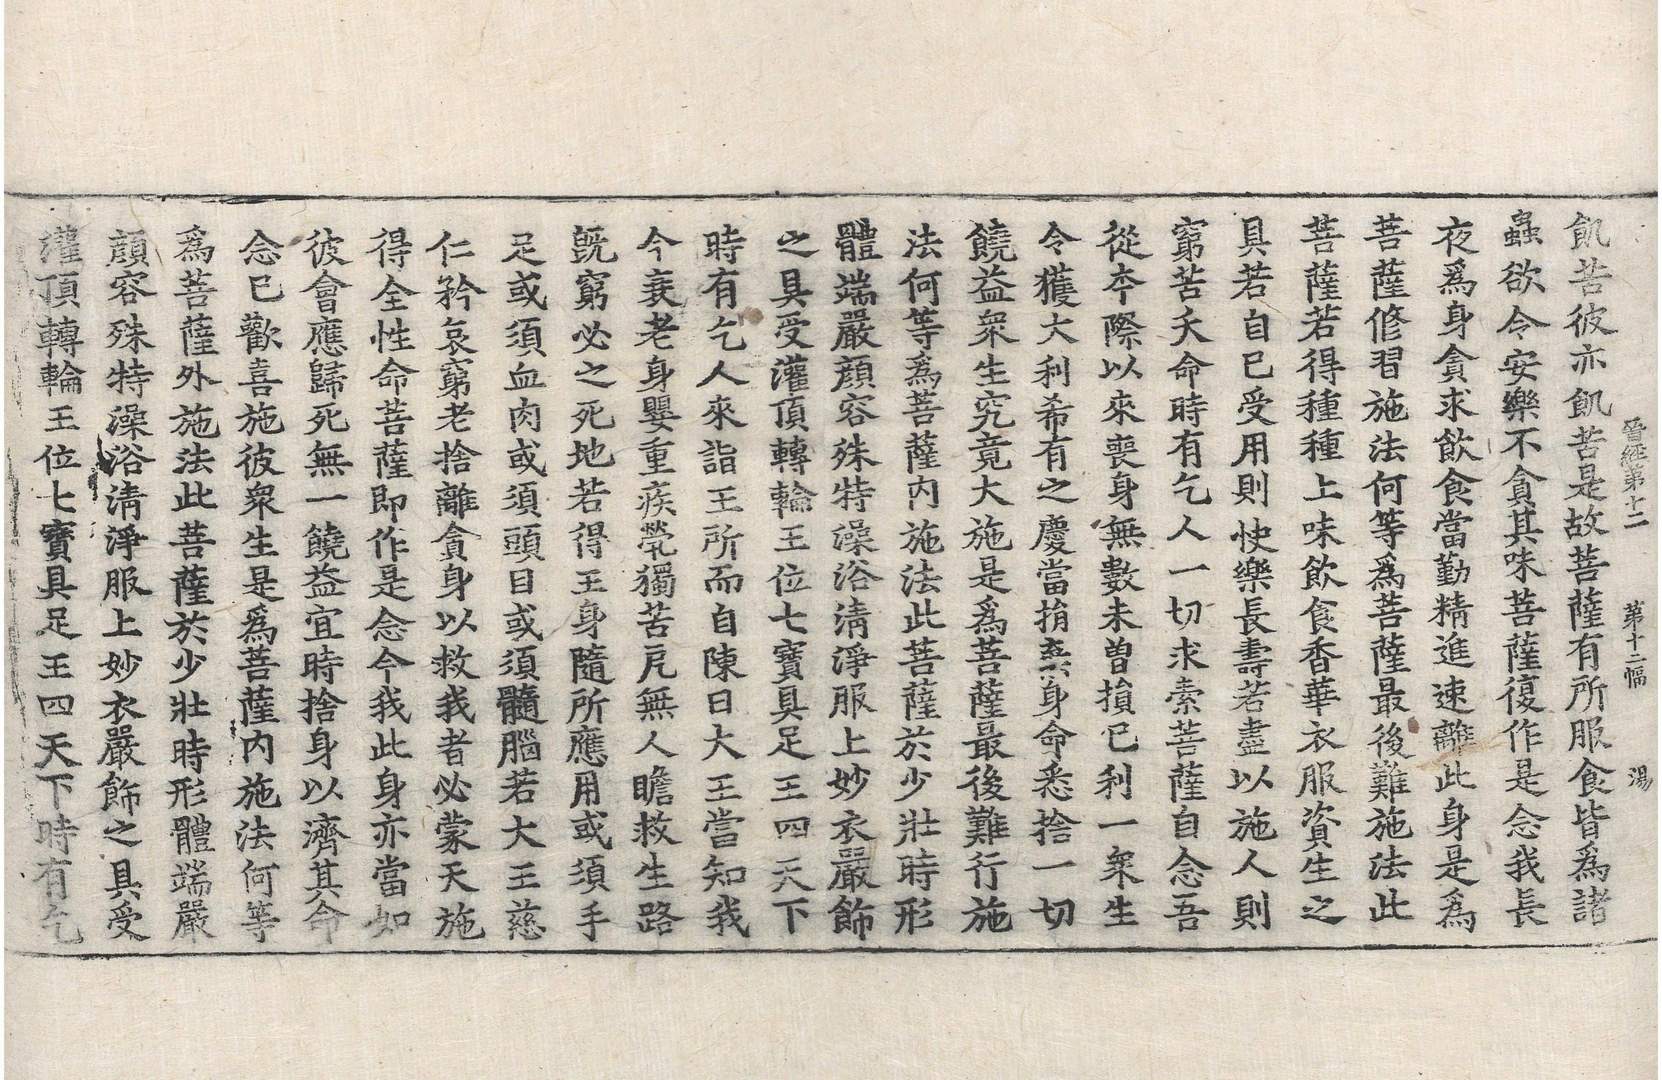 晉經第十二　第十二幅　湯
飢苦彼亦飢苦是故菩薩有所服食皆爲諸
蟲欲令安樂不貪其味菩薩復作是念我長
夜爲身貪求飲食當勤精進速離此身是爲
菩薩修習施法何等爲菩薩最後難施法此
菩薩若得種種上味飲食香華衣服資生之
具若自已受用則快樂長壽若盡以施人則
窮苦夭命時有乞人一切求索菩薩自念吾
從本際以來喪身無數未曾損已利一衆生
令獲大利希有之慶當捐棄身命悉捨一切
饒益衆生究竟大施是爲菩薩最後難行施
法何等爲菩薩內施法此菩薩於少壯時形
體端嚴顔容殊特澡浴淸淨服上妙衣嚴飾
之具受灌頂轉輪王位七寶具足王四天下
時有乞人來詣王所而自陳曰大王當知我
今衰老身嬰重疾煢獨苦厄無人瞻救生路
旣窮必之死地若得王身隨所應用或須手
足或須血肉或須頭目或須髓腦若大王慈
仁矜哀窮老捨離貪身以救我者必蒙天施
得全性命菩薩即作是念今我此身亦當如
彼會應歸死無一饒益宜時捨身以濟其命
念已歡喜施彼衆生是爲菩薩內施法何等
爲菩薩外施法此菩薩於少壯時形體端嚴
顔容殊特澡浴淸淨服上妙衣嚴飾之具受
灌頂轉輪王位七寶具足王四天下時有乞